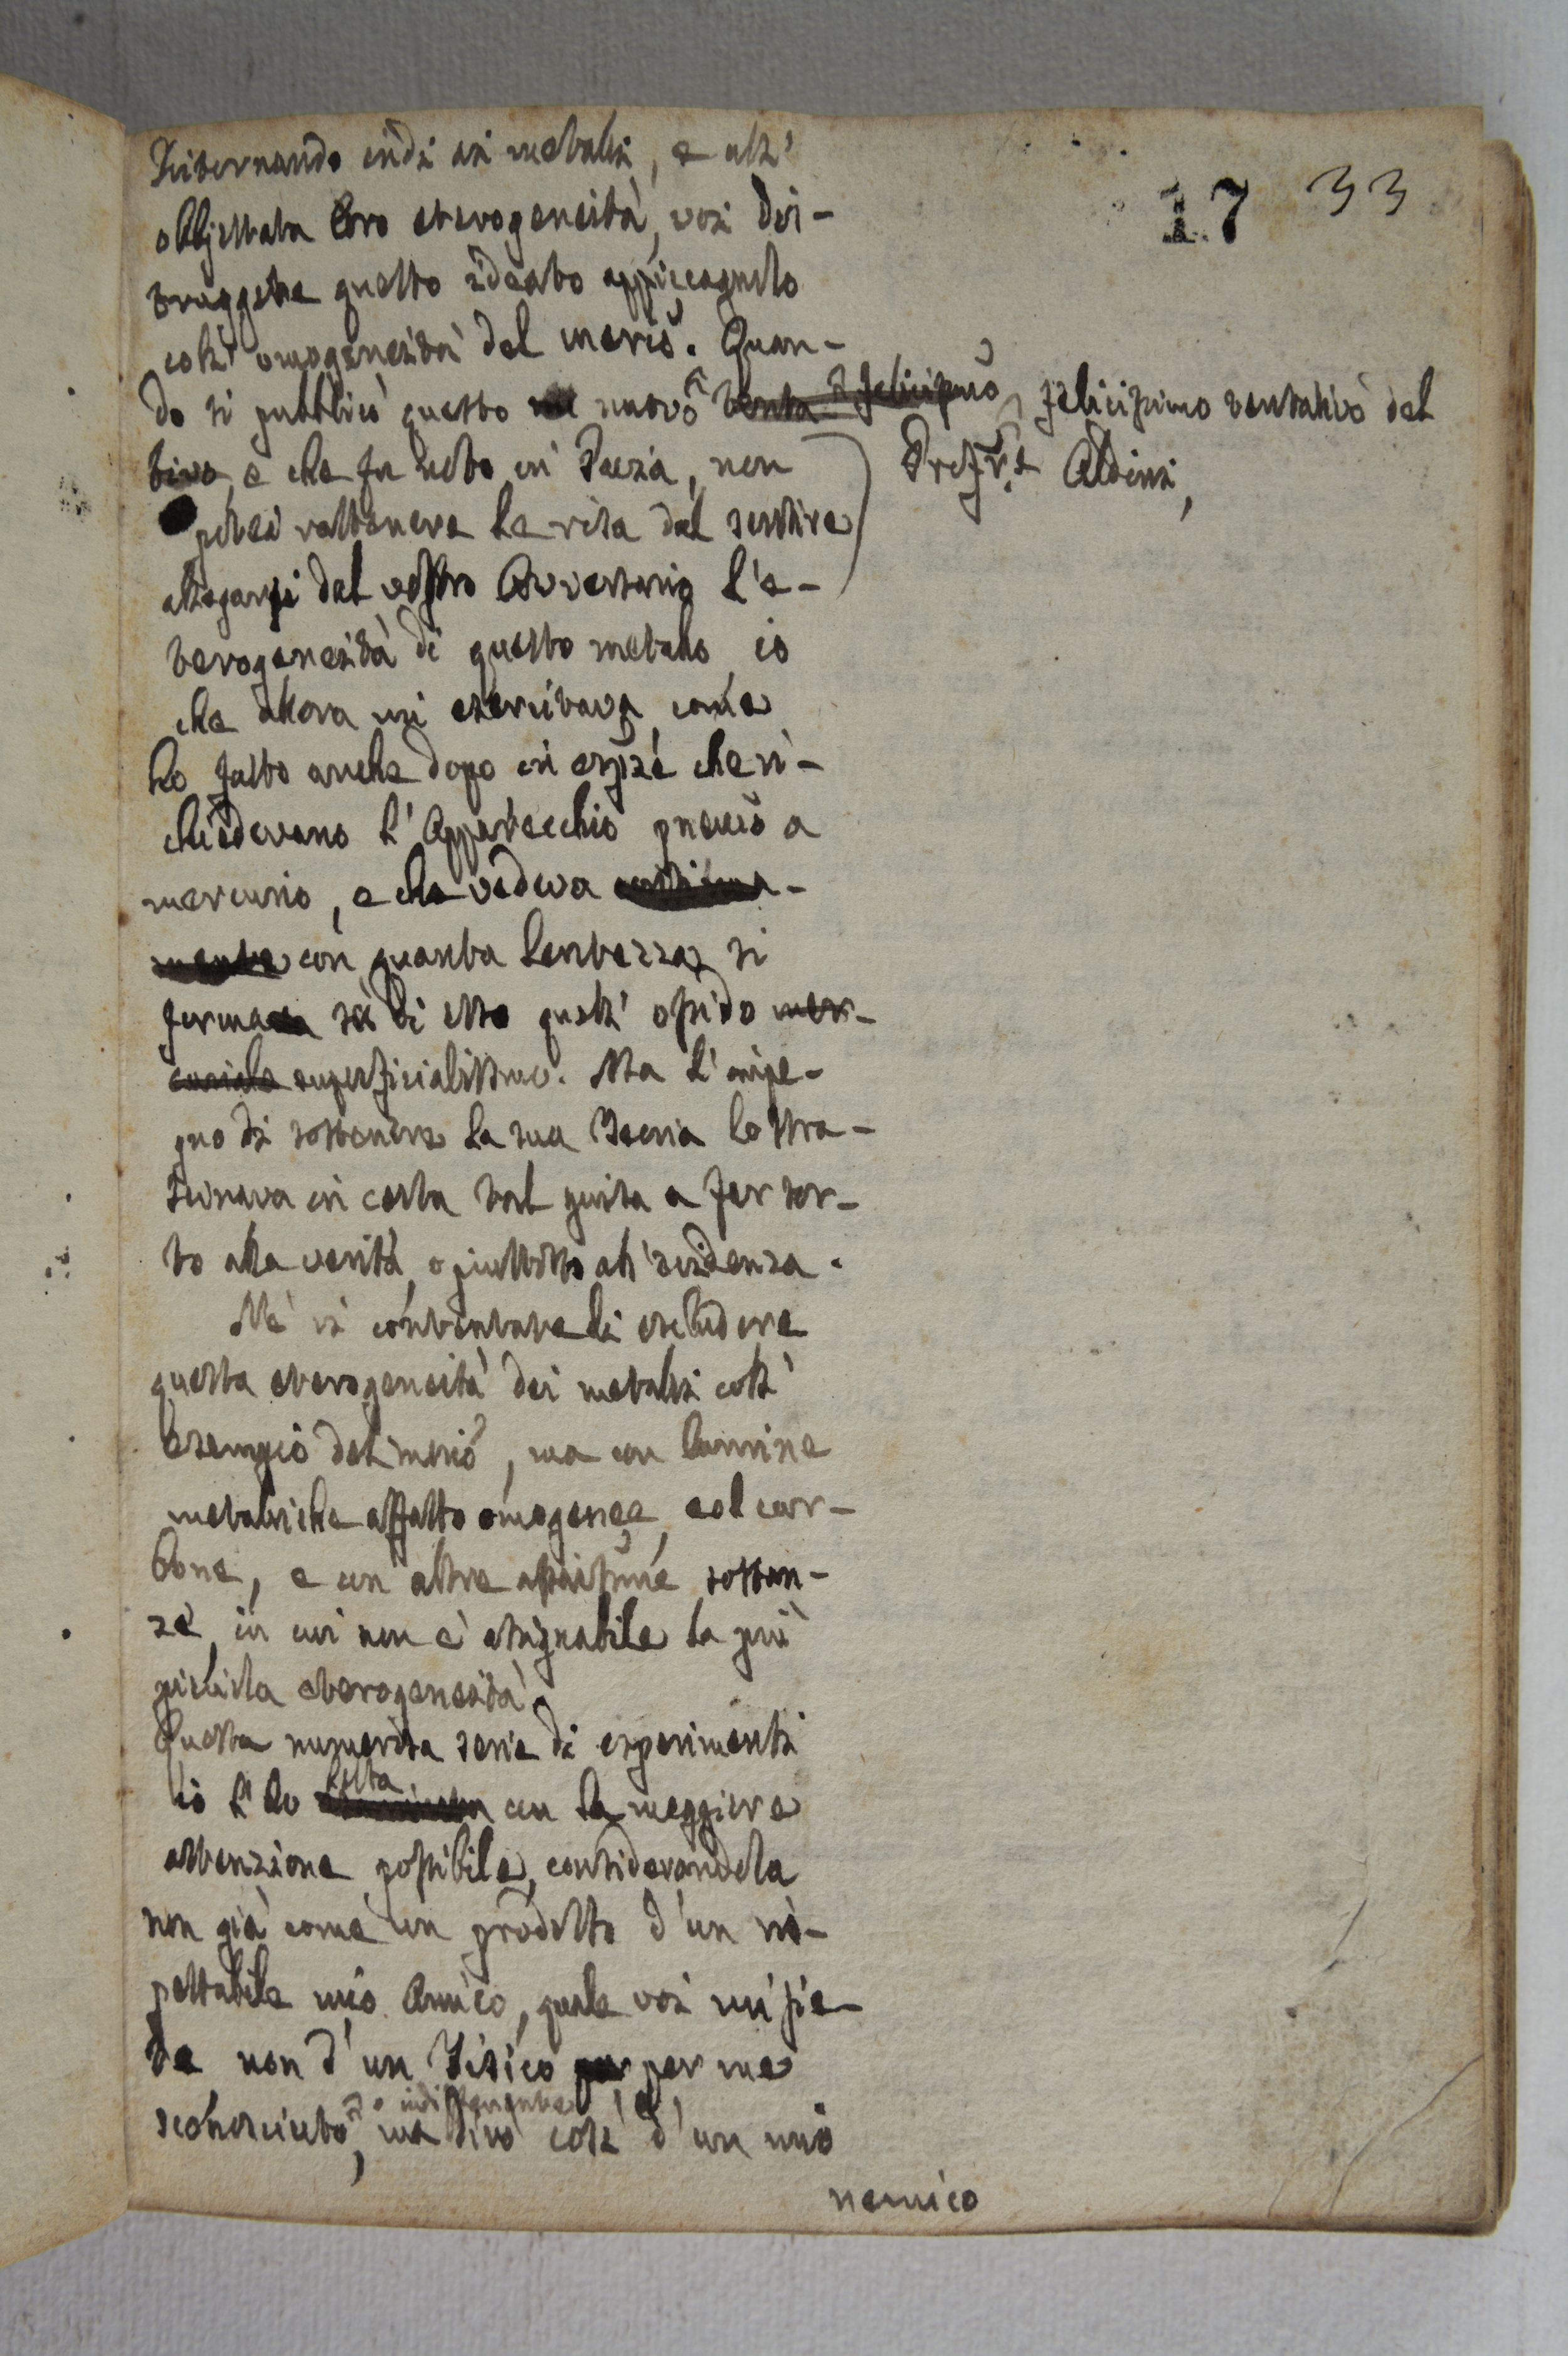 17 33
Ritornando indi ai metalli, e all'
obbjettata loro eterogeneità, voi dis-
truggete questo ideato appiccagnolo
coll' omogeneità del merio. Quan-
do si pubblicò questo nuovo tenta- felicissimo felicissimo tentativo del
Profr.e Aldini,
tivo, e che fu noto in Pavia, non
potei rattenere le risa dal sentire
allegarsi dal vostro Avversario l'e-
terogeneità di questo metallo, io
che allora mi esercitava, come
ho fatto anche dopo in espze che ri-
chiedevano l'Apparecchio pneuo a
mercurio, e che vedeva continua-
mente con quanta lentezza si
forma su di esso quell' ossido mer-
curiale superficialissimo. Ma l'impe-
gno di sostenere la sua Teoria lo stra-
scinava in certa tal guisa a far tor-
to alla verità, o piuttosto all'evidenza.
Nè vi contentate di escludere
questa eterogeneità dei metalli coll'
esempio del merio, ma con lamine
metalliche affatto omogenee, col car-
bone, e con altre sostan-
ze, in cui non è assegnabile la più
picciola eterogeneità.
Questa numerosa serie di esperimenti
io l'ho letta con la maggiore
attenzione possibile, considerandola
non già come un prodotto d'un ris-
pettabile mio Amico, quale voi mi sie-
te non d'un Fisico per me
sconosciuto, o indifferente, ma dirò così d'un mio
nemico